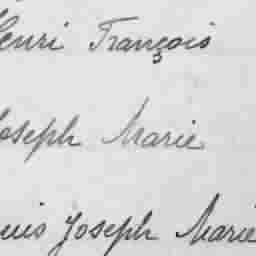 Henri François
Joseph Marie
Louis Joseph Marie